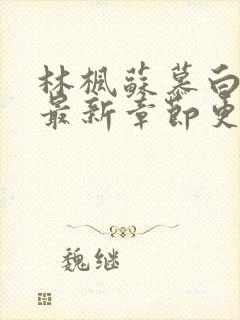 林枫苏慕白
最新章节更
魏继